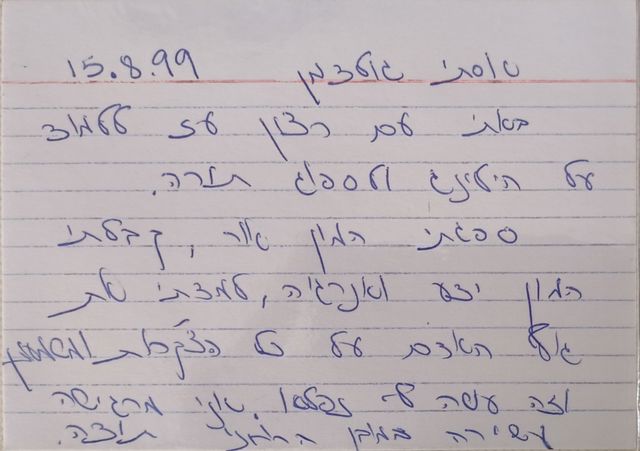 אסתי גולדמן 15.8.99
באתי עם רצון עז ללמוד
על הילינג ולספוג תורה.
ספגתי המון אור, קבלתי
המון ידע ואנרגיה, למדתי את
גוף האדם על כל הצ'קרות
וזה עשה לי נפלא. אני מרגישה
עשירה במובן הרוחני תודה.